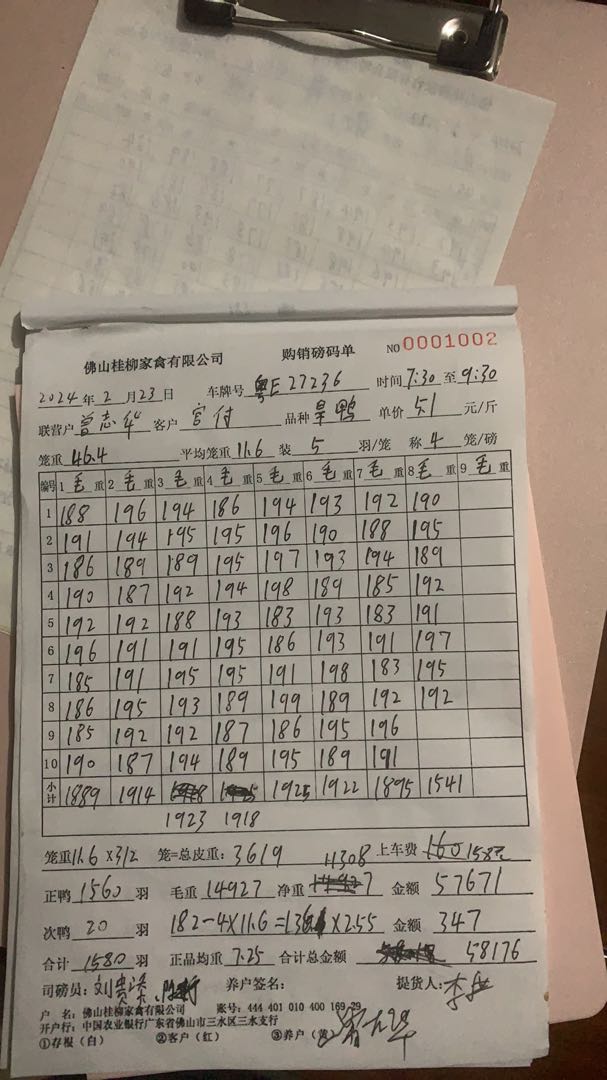 佛山桂柳家禽有限公司 购销磅码单 NO 0001002
2024年2月23日 车牌号 粤E27236 时间7:30至9:30
联营户 曾志华 客户 官付 品种 旱鸭 单价 5.1 元/斤
笼重 46.4 平均笼重 11.6 装 5 羽/笼 称 4 笼/磅
编号 1 毛重 2 毛重 3 毛重 4 毛重 5 毛重 6 毛重 7 毛重 8 毛重 9 毛重
1 188 196 194 186 194 193 192 190
2 191 194 195 195 196 190 188 195
3 186 189 189 195 197 193 194 189
4 190 187 192 194 198 189 185 192
5 192 192 188 193 183 193 183 191
6 196 191 191 195 186 193 191 197
7 185 191 195 195 191 198 183 195
8 186 195 193 189 199 189 192 192
9 185 192 192 187 186 195 196
10 190 187 194 189 195 189 191
小计 1889 1914 1925 1922 1895 1541
1923 1918
笼重11.6×312 笼=总皮重:3619 11308 上车费 160 158元
正鸭 1560 羽 毛重 14927 净重 金额 57671
次鸭 20 羽 182-4×11.6=136 ×2.55 金额 347
合计 1580 羽 正品均重 7.25 合计总金额 58176
司磅员: 养户签名: 提货人:
户 名: 佛山桂柳家禽有限公司 账号: 444 401 010 400 169 29
开户行: 中国农业银行广东省佛山市三水区三水支行
①存根(白) ②客户(红) ③养户(黄)